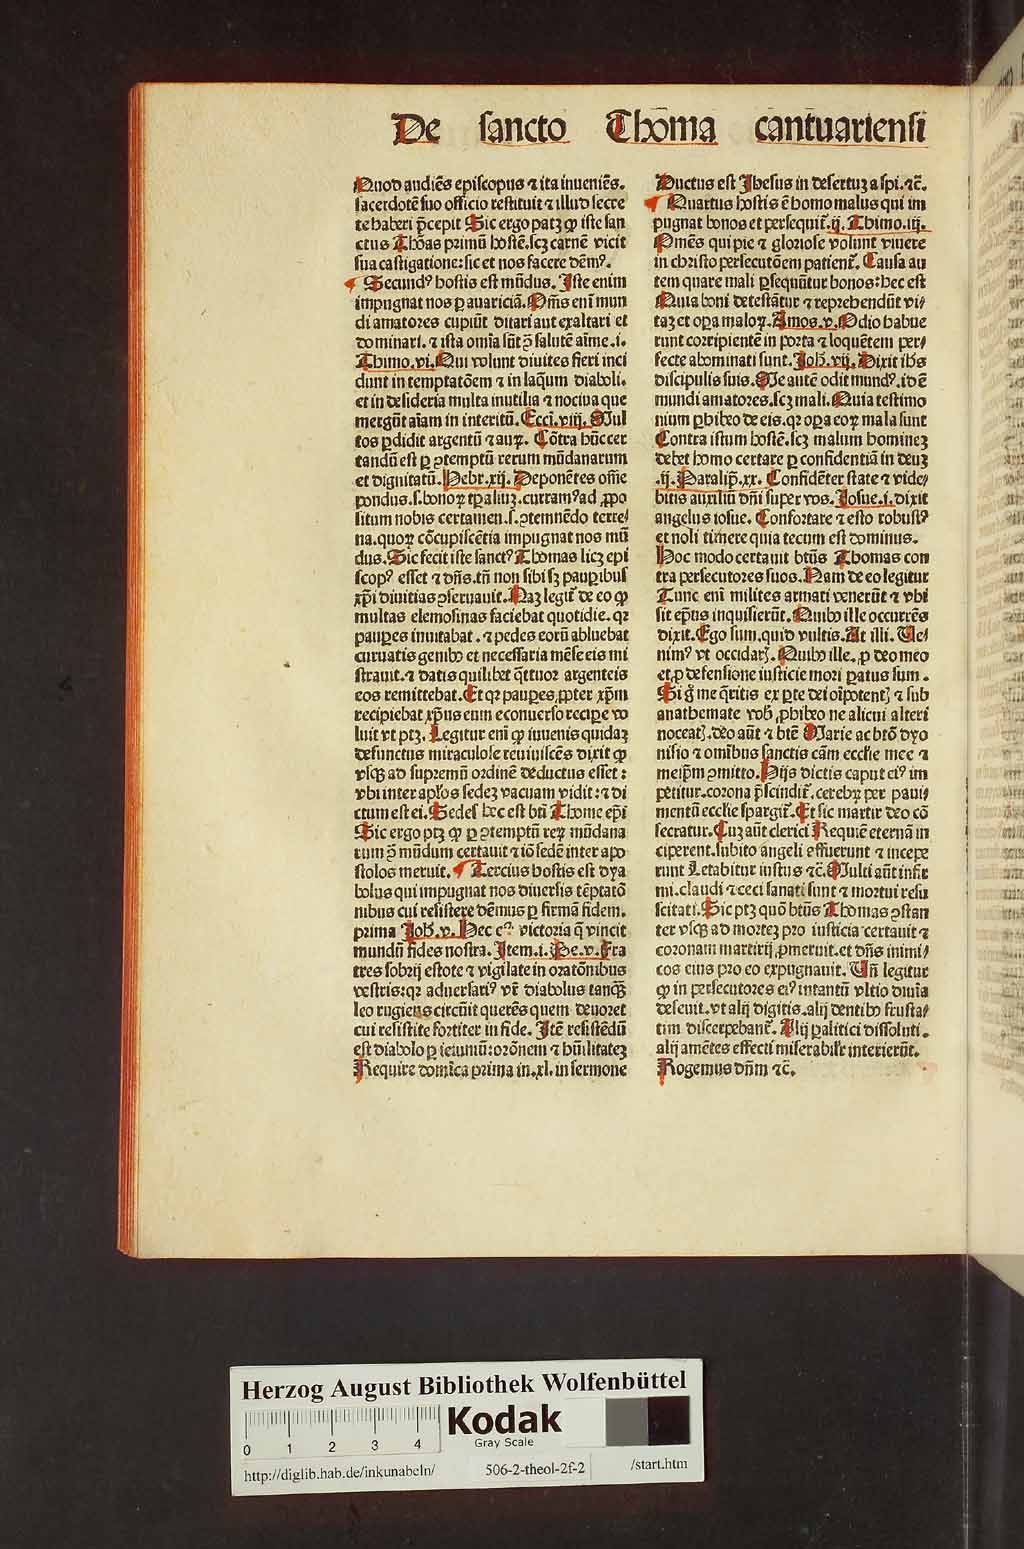 De sancto Thōma cantuariensi
Quod audiēs episcopus ⁊ ita inueniēs.
sacerdotē suo officio restituit ⁊ illud secre
te haberi p̄cepit Sic ergo patꝫ ꝙ iste san
ctus Thōas primū hostē.scꝫ carnē vicit
sua castigatione: sic et nos facere dēmꝰ.
Secundꝰ hostis est mūdus. Iste enim
impugnat nos ꝑ auariciā. Om̄s enī mun
di amatores cupiūt ditari aut exaltari et
dominari. ⁊ ista om̄ia sūt ꝯ̄ salutē aīme .i.
Thimo.vi. Qui volunt diuites fieri inci
dunt in temptatōem ⁊ in laq̄um diaboli.
et in desideria multa inutilia ⁊ nociua que
mergūt aīam in interitū. Ecci.viij. Mul
tos ꝑdidit argentū ⁊ auꝝ. Cōtra hūc cer
tandū est ꝑ ꝯtemptū rerum mūdanarum
et dignitatū. Hebr.xij. Deponētes om̄e
pondus.s.bonoꝝ tp̄aliuꝫ.curramꝰ ad ꝓpo
situm nobis certamen.s.ꝯtemnēdo terre/
na.quoꝝ cōcupiscētia impugnat nos mū
dus. Sic fecit iste sanctꝰ Thomas licꝫ epi
scopꝰ esset ⁊ dn̄s.tn̄ non sibi sꝫ pauꝑibus
xp̄i diuitias ꝯseruauit. Naꝫ legit̄ de eo ꝙ
multas elemosinas faciebat quotidie. qꝛ
pauꝑes inuitabat. ⁊ pedes eorū abluebat
curuatis genibꝰ et necessaria mēse eis mi
strauit. ⁊ datis quilibet q̄ttuor argenteis
eos remittebat. Et qꝛ pauꝑes ꝓpter xp̄m
recipiebat xp̄us eum econuerso reciꝑe vo
luit vt ptꝫ. Legitur enī ꝙ iuuenis quidaꝫ
defunctus miraculose reuiuiscēs dixit ꝙ
vsqꝫ ad supremū ordinē deductus esset:
vbi inter apl̄os sedeꝫ vacuam vidit: ⁊ di
ctum est ei. Sedes hec est bt̄i Thome ep̄i
Sic ergo ptꝫ ꝙ ꝑ ꝯtemptū reꝝ mūdana
rum ꝯ̄ mūdum certauit ⁊ iō sedē inter apo
stolos meruit. Tercius hostis est dya
bolus qui impugnat nos diuersis tēptatō
nibus cui resistere dēmus ꝑ firmā fidem.
prima Ioh̄.v. Hec ē victoria q̄ vincit
mundū fides nostra. Item.i.Pe.v. Fra
tres sobrij estote ⁊ vigilate in oratōnibus
vestris: qꝛ aduersariꝰ vr̄ diabolus tanq̄ꝫ
leo rugiens circūit querēs quem deuoret
cui resistite fortiter in fide. Itē resistēdū
est diabolo ꝑ ieiuniū: orōnem ⁊ hūilitateꝫ
Require domīca prima in .xl. in sermone
Ductus est Ihesus in desertuꝫ a spi. ⁊c̄.
Quartus hostis ē homo malus qui im
pugnat bonos et persequit̄. ij. Thimo.iij.
Om̄es qui pie ⁊ gloriose volunt viuere
in christo persecutōem patient̄. Causa au
tem quare mali ꝑsequūtur bonos: hec est
Quia boni detestātur ⁊ reprehendūt vi/
taꝫ et oꝑa maloꝝ. Amos.v. Odio habue
runt corripientē in porta ⁊ loquētem per/
fecte abominati sunt. Ioh̄.vij. Dixit ih̄s
discipulis suis. Me autē odit mundꝰ. id ē
mundi amatores.scꝫ mali. Quia testimo
nium ꝑhibeo de eis. qꝛ oꝑa eoꝝ mala sunt
Contra istum hostē.scꝫ malum homineꝫ
debet homo certare ꝑ confidentiā in deuꝫ
.ij. Paralip̄.xx. Confidēter state ⁊ vide/
bitis auxiliū dn̄i super vos. Iosue.i. dixit
angelus iosue. Confortare ⁊ esto robustꝰ
et noli timere quia tecum est dominus.
Hoc modo certauit bt̄us Thomas con
tra persecutores suos. Nam de eo legitur
Tunc enī milites armati venerūt ⁊ vbi
sit ep̄us inquisierūt. Quibꝰ ille occurrēs
dixit. Ego sum.quid vultis. At illi. Ue/
nimꝰ vt occidarꝭ. Quibꝰ ille. ꝓ deo meo
et ꝓ defensione iusticie mori ꝑatus sum.
Si g̊ me q̄ritis ex ꝑte dei oīpotentꝭ ⁊ sub
anathemate vob̄ ꝓhibeo ne alicui alteri
noceatꝭ. deo aūt ⁊ bt̄e Marie ac bt̄o dyo
nisio ⁊ om̄ibus sanctis cām ecclie mee ⁊
meip̄m ꝯmitto. Hijs dictis caput eiꝰ im
petitur.corona p̄scindit̄. cerebꝝ per paui/
mentū ecclie spargit̄. Et sic martir deo cō
secratur. Cuꝫ aūt clerici Requiē eternā in
ciperent.subito angeli affuerunt ⁊ incepe
runt Letabitur iustus ⁊c̄. Multi aūt infir
mi.claudi ⁊ ceci sanati sunt ⁊ mortui resu
scitati. Sic ptꝫ quō bt̄us Thomas ꝯstan
ter vsqꝫ ad morteꝫ pro iusticia certauit ⁊
coronam martirij ꝓmeruit. et dn̄s inimi/
cos eius pro eo expugnauit. Un̄ legitur
ꝙ in persecutores eiꝰ intantū vltio diuīa
deseuit. vt alij digitis. alij dentibꝰ frusta/
tim discerpebant̄. Alij ꝑalitici dissoluti.
alij amētes effecti miserabilr̄ interierūt.
Rogemus dn̄m ⁊c̄.
Herzog August Bibliothek Wolfenbüttel
0 1 2 3 4
Kodak
Gray Scale
http://diglib.hab.de/inkunabeln/ 506-2-theol-2f-2 /start.htm